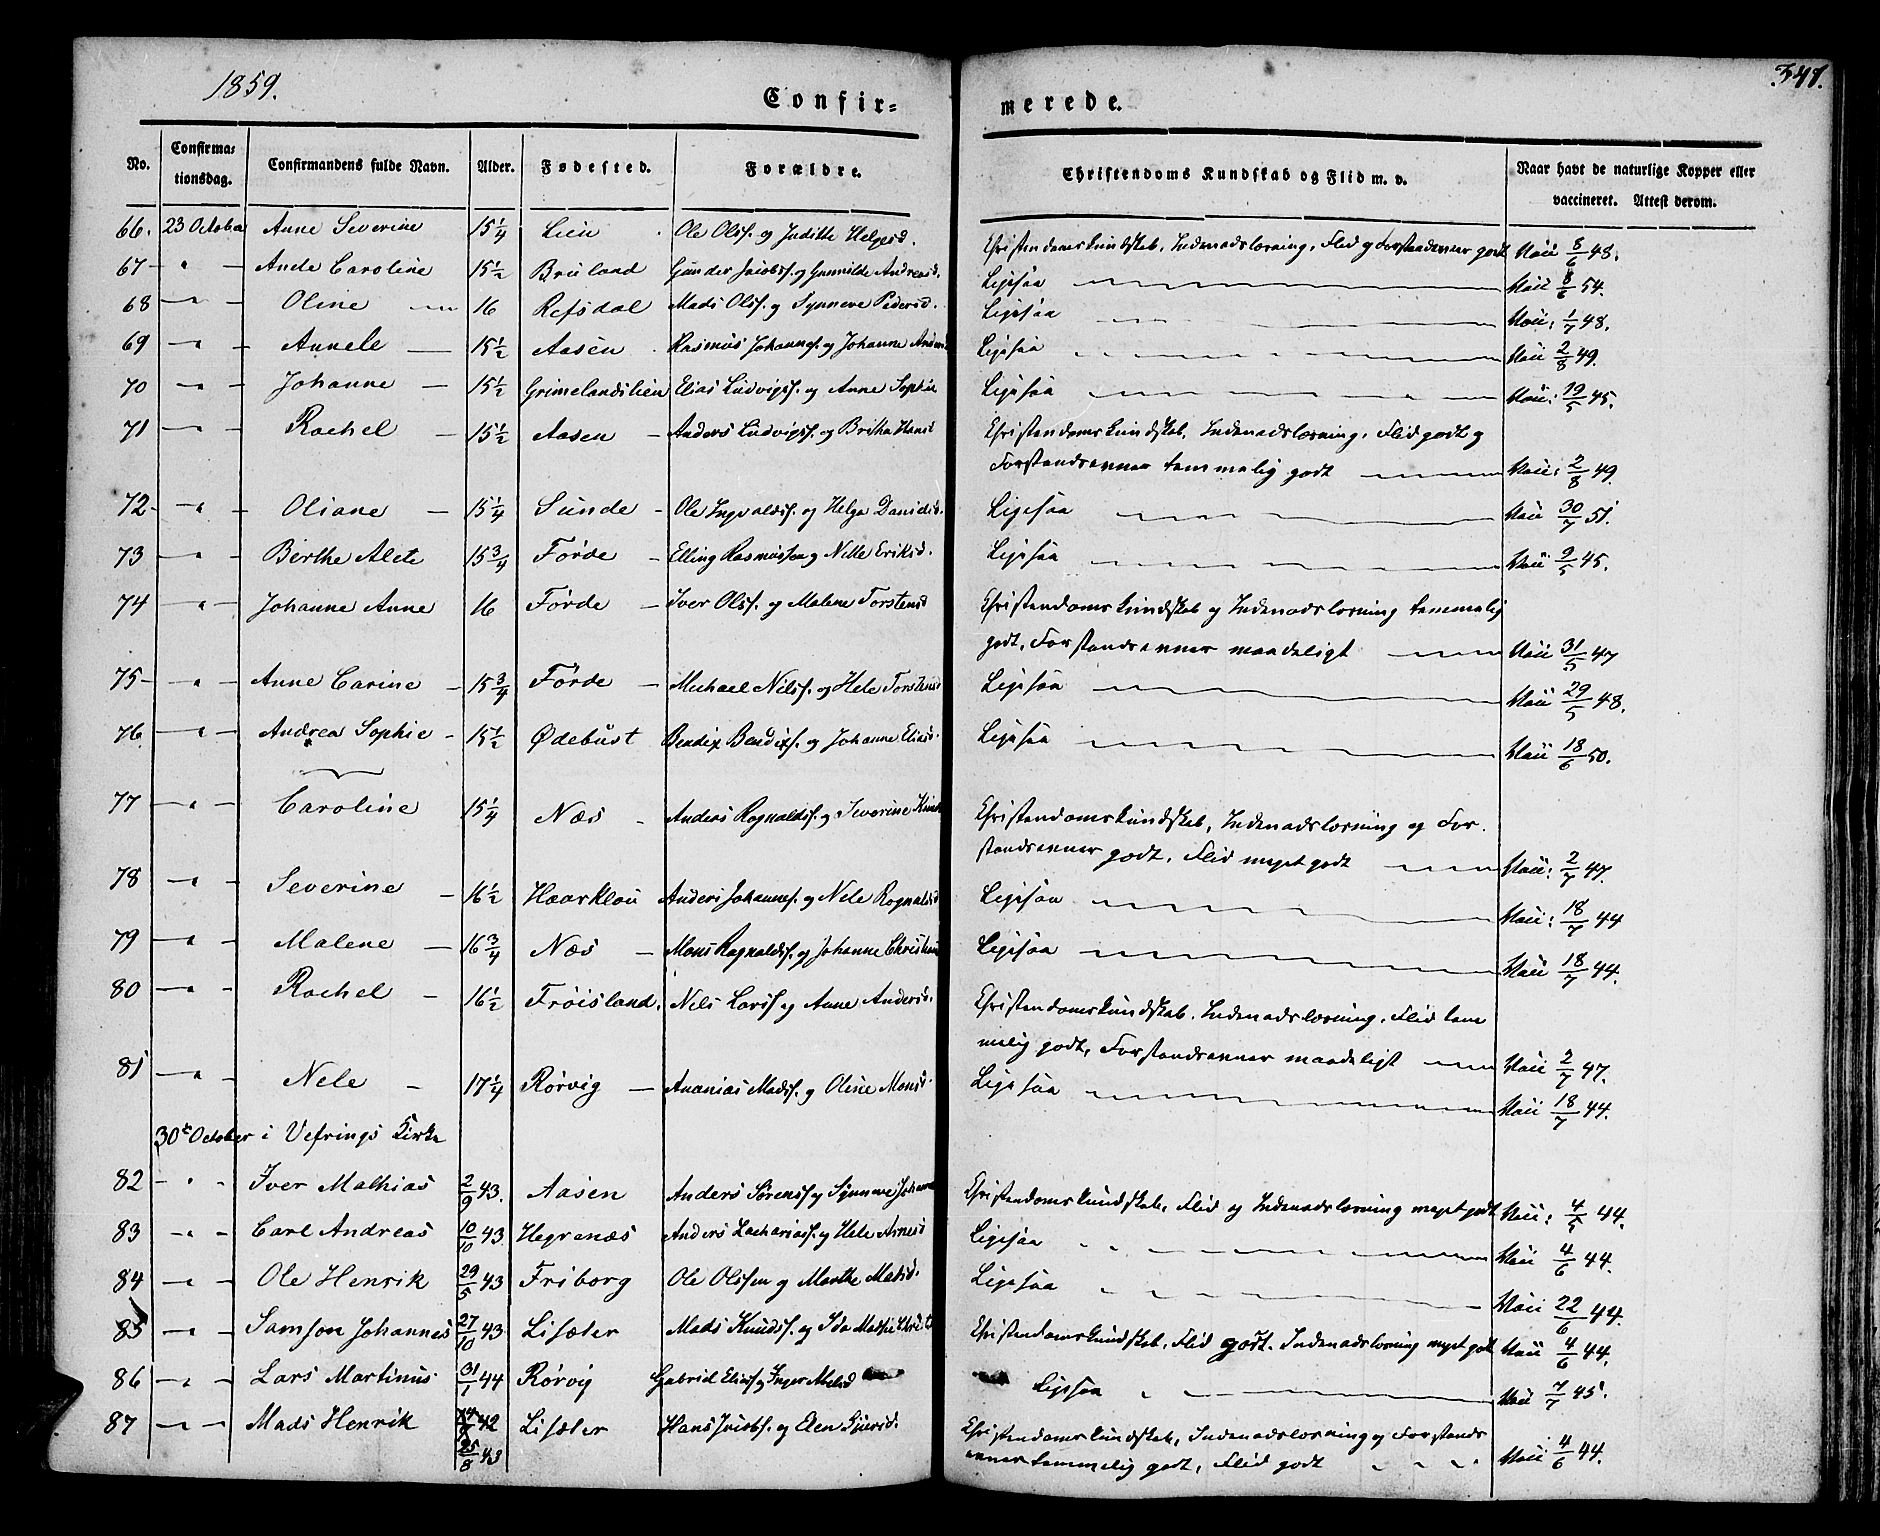 1859.
347.
Confir=
merede.
No.
Confirma=
tionsdag.
Confirmandens fulde Navn.
Alder.
Fødested.
Forældre.
Christendoms Kundskab og Flid m. v.
Naar havt de naturlige Kopper eller
vaccineret. Attest derom.
66. 23 Octoba Anne Severine 15 1/4 Lien Ole Olss. og Judithe Helgesd. Christendomskundskab, Indenadslæsning, Flid og Forstandsevner godt Vacc 8/6 48.
67 - " - Ande Caroline 15 1/2 Bruland Gunder Jacobss. og Gunnilde Andreasd. Ligesaa Vacc 8/6 54.
68 - " - Oline 16 Refsdal Mads Olss. og Synneve Pedersd. Ligesaa Vacc: 1/7 48.
69 - " - Annele 15 1/2 Aasen Rasmus Johanness. og Johanne Ligesaa Vacc 2/8 49.
70 - " - Johanne 15 1/2 Grimelandslien Elias Ludvigss. og Anne Sophie Ligesaa Vacc: 19/5 45.
71 - " - Rachel 15 1/2 Aasen Anders Ludvigss. og Britha Hansd Christendomskundskab, Indenadslæsning, Flid godt og
Forstandsevner temmelig godt Vacc: 2/8 49.
72 - " - Oliane 15 1/4 Sunde Ole Ingvaldss. og Helga Danielsd. Ligesaa Vacc 30/7 51.
73 - " - Berthe Alete 15 3/4 Førde Elling Rasmussen og Nille Eriksd. Ligesaa Vacc 2/5 45.
74 - " - Johanne Anne 16 Førde Iver Olss. og Malene Torstensd Christendomskundskab og Indenadslæsning temmelig
godt, Forstandsevner maadeligt Vacc 31/5 47
75 - " - Anne Carine 15 3/4 Førde Michael Nilss. og Hele Torstensd Ligesaa Vacc 29/5 48.
76 - " - Andrea Sophie 15 1/2 Ødebust Bendix Bendixs. og Johanne Eliasd. Ligesaa Vacc 18/6 50.
77 - " - Caroline 15 1/4 Næs Anders Rognaldss. og Severine Christendomskundskab, Indenadslæsning og For-
standsevner godt, Flid meget godt Vacc: 2/7 47.
78 - " - Severine 16 1/2 Haarklau Anders Johanness. og Nele Rognaldsd Ligesaa Vacc: 18/7 44
79 - " - Malene 16 3/4 Næs Mons Rognaldss. og Johanne Ligesaa Vacc 18/7 44.
80 - " - Rachel 16 1/2 Frøisland. Nels Larss og Anne Andersd. Christendomskundskab, Indenadslæsning, Flid tem
melig godt, Forstandsevner maadeligt Vacc 2/7 47.
81 - " - Nele 17 1/4 Rørvig Ananias Madss. og Oline Monsd. Ligesaa Vacc 18/7 44.
30te October i Vefrings Kirke
82 - " - Iver Mathias 2/9 43. Aasen Anders Sørenss og Synneve Christendomskundskab, Flid og Indenadslæsning meget godt Vacc: 4/5 44.
83 - " - Carl Andreas 10/10 43 Hegrenæs Anders Zachariass. og Hele Arnesd Ligesaa Vacc 4/6 44.
84 - " - Ole Henrik 29/5 43 Friborg Ole Olssen og Marthe Matsd. Ligesaa Vacc 22/6 44.
85 - " - Samson Johannes 27/10 43 Lisæter Mads Knudss. og Ida Christendomskundskab, Flid godt. Indenadslæsning meget godt Vacc 4/6 44.
86 - " - Lars Martinus 31/1 44 Rørvig Gabriel Eliass og Inger Ligesaa Vacc 7/7 45.
87 - " - Mads Henrik 42 Lisæter Hans Jacobss. og Elen Christendomskundskab, Indenadslæsning og Forstands
25/8 43 evner temmelig godt, Flid godt Vacc 4/6 44.